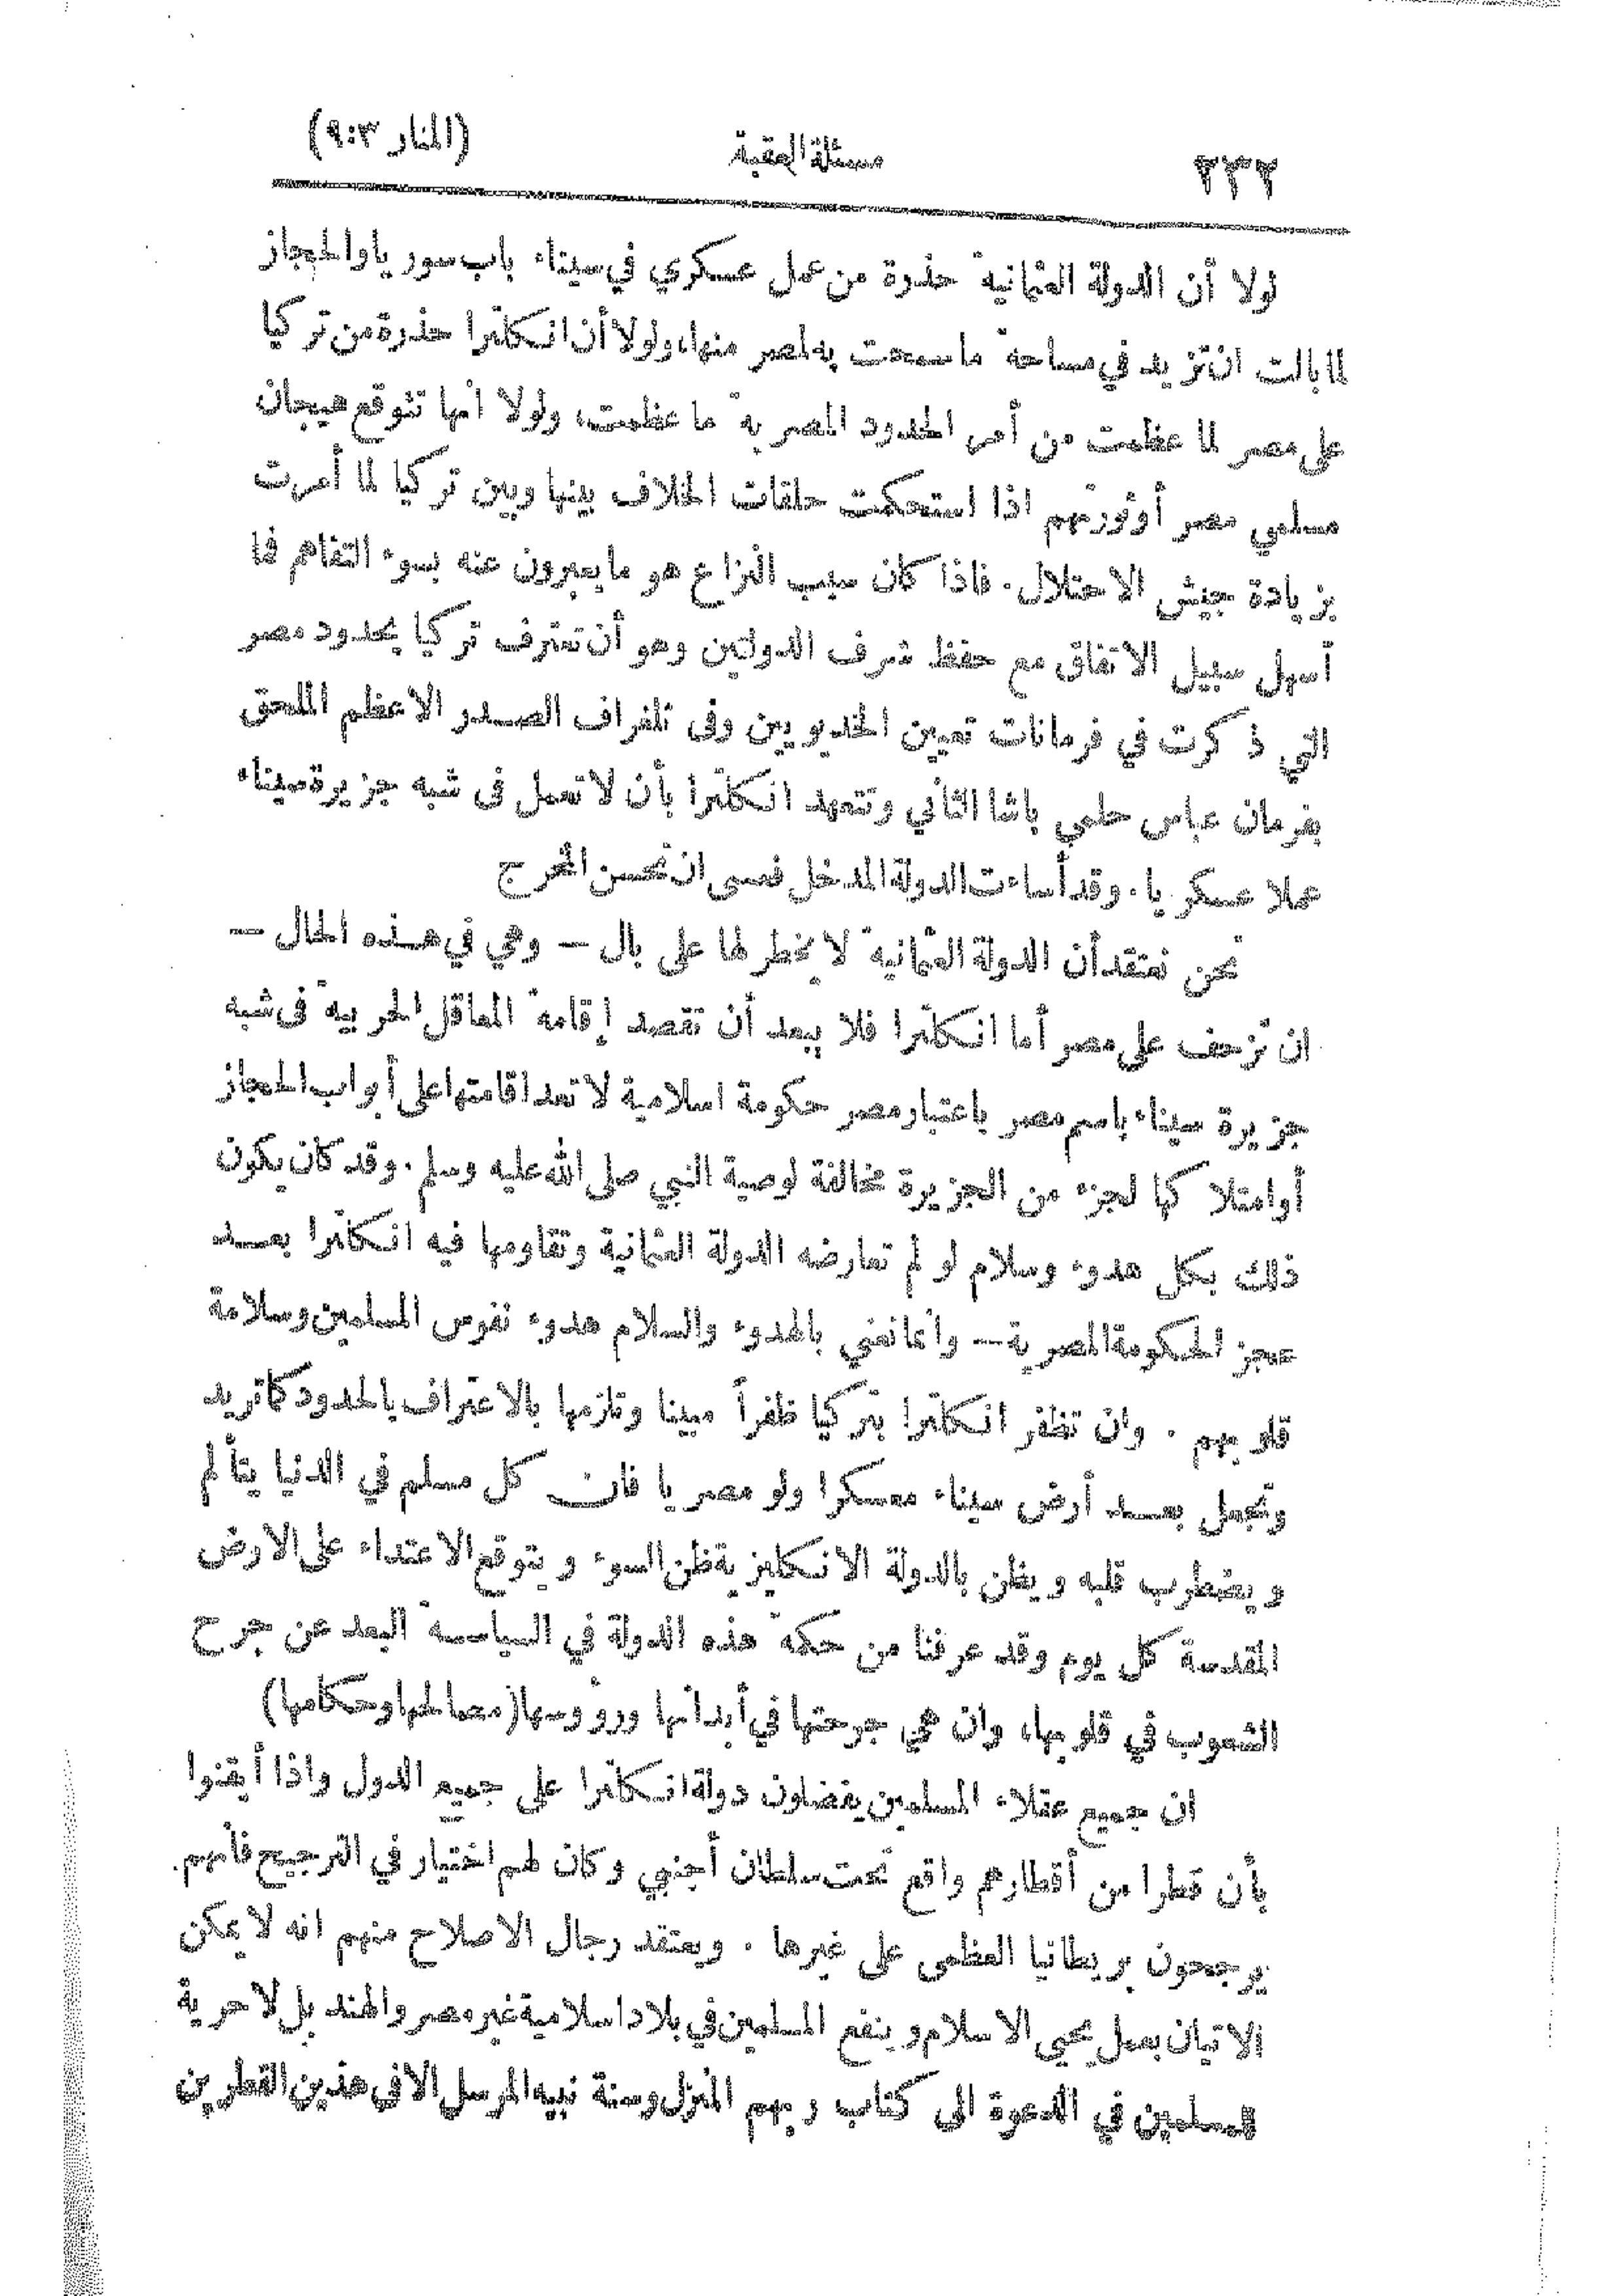 ٢٣٢ مسئلة العقبة (المنار ٩:٣)
لولا أن الدولة العثمانية حذرة من عمل عسكري في سيناء باب سوريا والحجاز
لما بالت ان تزيد في مساحة ما سمحت به لمصر منها، ولولا أن انكلترا حذرة من تركيا
على مصر لما عظمت من أمر الحدود المصرية ما عظمت، ولولا انها تتوقع هيجان
مسلمي مصر أو ثورتهم اذا استحكمت حلقات الخلاف بينها وبين تركيا لما أمرت
بزيادة جيش الاحتلال. فاذا كان سبب النزاع هو ما يعبرون عنه بسوء التفاهم فما
أسهل سبيل الاتفاق مع حفظ شرف الدولتين وهو أن تعترف تركيا بحدود مصر
التي ذكرت في فرمانات تعيين الخديويين وفى تلغراف الصدر الاعظم الملحق
بفرمان عباس حلمي باشا الثاني وتتعهد انكلترا بأن لا تعمل فى شبه جزيرة سيناء
عملا عسكريا. وقد أساءت الدولة المدخل فعسى ان تحسن المخرج
نحن نعتقد أن الدولة العثمانية لا يخطر لها على بال — وهي في هذه الحال —
ان تزحف على مصر أما انكلترا فلا يبعد أن تقصد إقامة المعاقل الحربية فى شبه
جزيرة سيناء باسم مصر باعتبار مصر حكومة اسلامية لا تعد اقامتها على أبواب الحجاز
أو امتلاكها لجزء من الجزيرة مخالفة لوصية النبي صلى الله عليه وسلم. وقد كان يكون
ذلك بكل هدوء وسلام لو لم تعارضه الدولة العثمانية وتقاومها فيه انكلترا بعد
عجز الحكومة المصرية — وانما نعني بالهدوء والسلام هدوء نفوس المسلمين وسلامة
قلوبهم. وان تظفر انكلترا بتركيا ظفراً مبينا وتلزمها بالاعتراف بالحدود كما تريد
وتجعل بعد أرض سيناء معسكرا ولو مصريا فان كل مسلم في الدنيا يتألم
ويضطرب قلبه ويظن بالدولة الانكليزية ظن السوء ويتوقع الاعتداء على الارض
المقدسة كل يوم وقد عرفنا من حكمة هذه الدولة في السياسة البعد عن جرح
الشعوب في قلوبها، وان هي جرحتها في أبدانها ورؤوسها (مصالحها وحكامها)
ان جميع عقلاء المسلمين يفضلون دولة انكلترا على جميع الدول واذا أيقنوا
بأن قطرا من أقطارهم واقع تحت سلطان أجنبي وكان لهم اختيار في الترجيح فانهم
يرجحون بريطانيا العظمى على غيرها. ويعتقد رجال الاصلاح منهم انه لا يمكن
الاتيان بعمل يحيي الاسلام وينفع المسلمين في بلاد اسلامية غير مصر والهند بل لا حرية
للمسلمين في الدعوة الى كتاب ربهم المنزل وسنة نبيه المرسل الا فى هذين القطرين